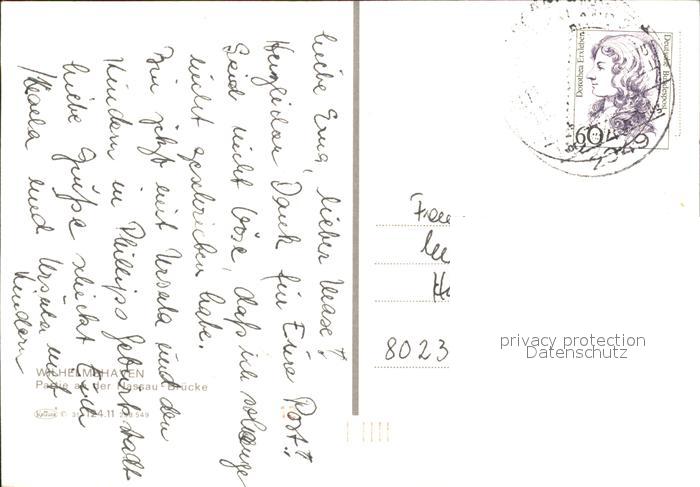 Liebe Erna, lieber Mase!
Herzlichen Dank für Eure Post!
Seid nicht böse, daß ich solange
nicht geschrieben habe.
Bin jetzt mit Ursula und den
Kindern in Phillips Geburtsstadt
Liebe Grüße schickt Euch
und Ursula mit
Kindern
WILHELMSHAVEN
Partie an der Nassau-Brücke
Deutsche Bundespost
Dorothea Erxleben
60
2949
8023
privacy protection
Datenschutz